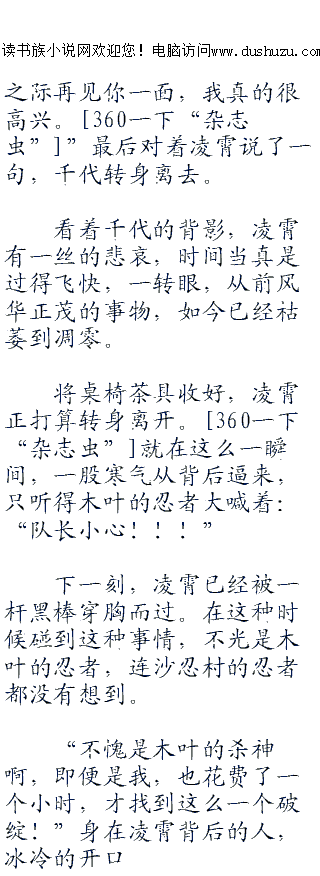 读书族小说网欢迎您！电脑访问www.dushuzu.com
之际再见你一面，我真的很
高兴。[360一下“杂志
虫”]”最后对着凌霄说了一
句，千代转身离去。
看着千代的背影，凌霄
有一丝的悲哀，时间当真是
过得飞快，一转眼，从前风
华正茂的事物，如今已经祜
萎到凋零。
将桌椅茶具收好，凌霄
正打算转身离开。[360一下
“杂志虫”]就在这么一瞬
间，一股寒气从背后逼来，
只听得木叶的忍者大喊着：
“队长小心！！！”
下一刻，凌霄已经被一
杆黑棒穿胸而过。在这种时
候碰到这种事情，不光是木
叶的忍者，连沙忍村的忍者
都没有想到。
“不愧是木叶的杀神
啊，即便是我，也花费了一
个小时，才找到这么一个破
绽！”身在凌霄背后的人，
冰冷的开口